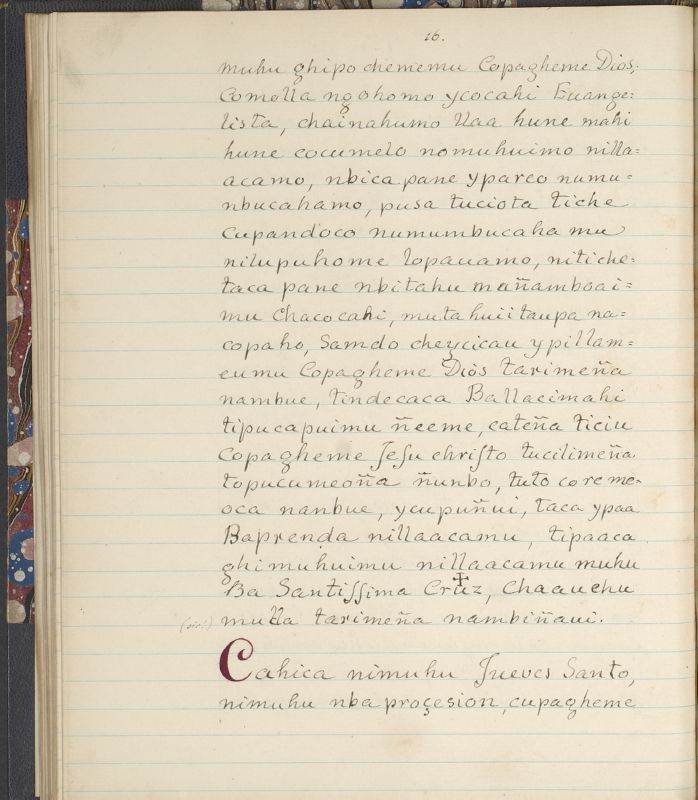 16.
muhu ghipo chememu Copagheme Dios,
Comolla ngohomo ycocahi Euange=
lista, chainahumo Uaa hune mahi
hune cocumelo nomuhuimo nilla=
acamo, nbica pane yparco numu=
nbucahamo, pusa tuciota tiche
cupandoco numumbucaha mu
nilupuhome lopauamo, nitiche=
taca pane nbitahu mañamboai=
mu Chacocahi, mutahuii taupa na=
copaho, Samdo cheycicau ypillam=
eumu Copagheme Diòs tarimeña
nambue, tindecaca Ballacimahi
tipucapuimu ñeeme, cateña ticiu
Copagheme Jeſu chriſto tucilimeña
topucumeoña ñunbo, tuto coreme=
oca nanbue, ycupuñui, taca ypaa
Baprenda nillaacamu, tipaaca
ghimuhuimu nillaacamu muhu
Ba Santiſſima Cruz, Chaauchu
(sic!) mulla tarimeña nambiñaui.
Cahica nimuhu Jueves Santo,
nimuhu nba proçesion, cupagheme